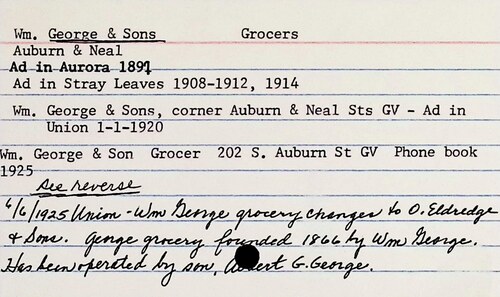 Wm. George & Sons Grocers
Auburn & Neal
Ad in Aurora 1891
Ad in Stray Leaves 1908-1912, 1914
Wm. George & Sons, corner Auburn & Neal Sts GV - Ad in
Union 1-1-1920
Wm. George & Son Grocer 202 S. Auburn St GV Phone book
1925
See reverse
6/6/1925 Union - Wm George grocery changes to O. Eldredge
& Sons. George grocery founded 1866 by Wm George.
Has been operated by son, Albert G. George.